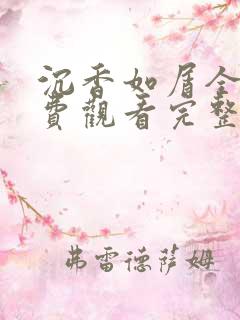 沉香如屑全
費觀看完整
弗雷德薩姆